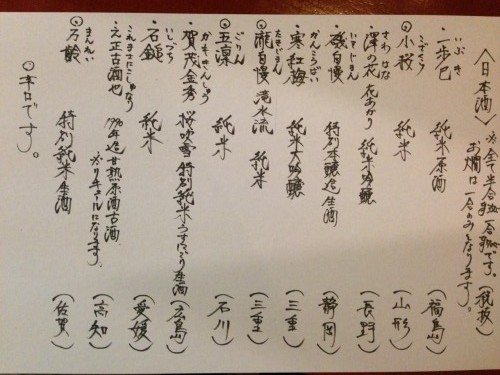 〈日本酒〉
※全て半合 一合です。(税抜)
お燗は一合のみとなります。
いぶき
・一歩己 純米原酒 (福島)
こざくら
◎小桜 純米 (山形)
さわ はな
・澤の花 花あかり 純米吟醸 (長野)
いそじまん
・磯自慢 特別本醸造生酒 (静岡)
かんこうばい
・寒紅梅 純米大吟醸 (三重)
たきじまん
◎瀧自慢 滝水流 純米 (三重)
ごりん
◎五凛 純米 (石川)
かもきんしゅう
・賀茂金秀 桜吹雪 特別純米うすにごり生酒 (広島)
いしづち
・石鎚 純米 (愛媛)
これまさにこしゅなり
・之正古酒也 1990年造 甘熟原酒古酒 (高知)
になります。
まんれい
◎万齢 特別純米生酒 (佐賀)
◎辛口です。